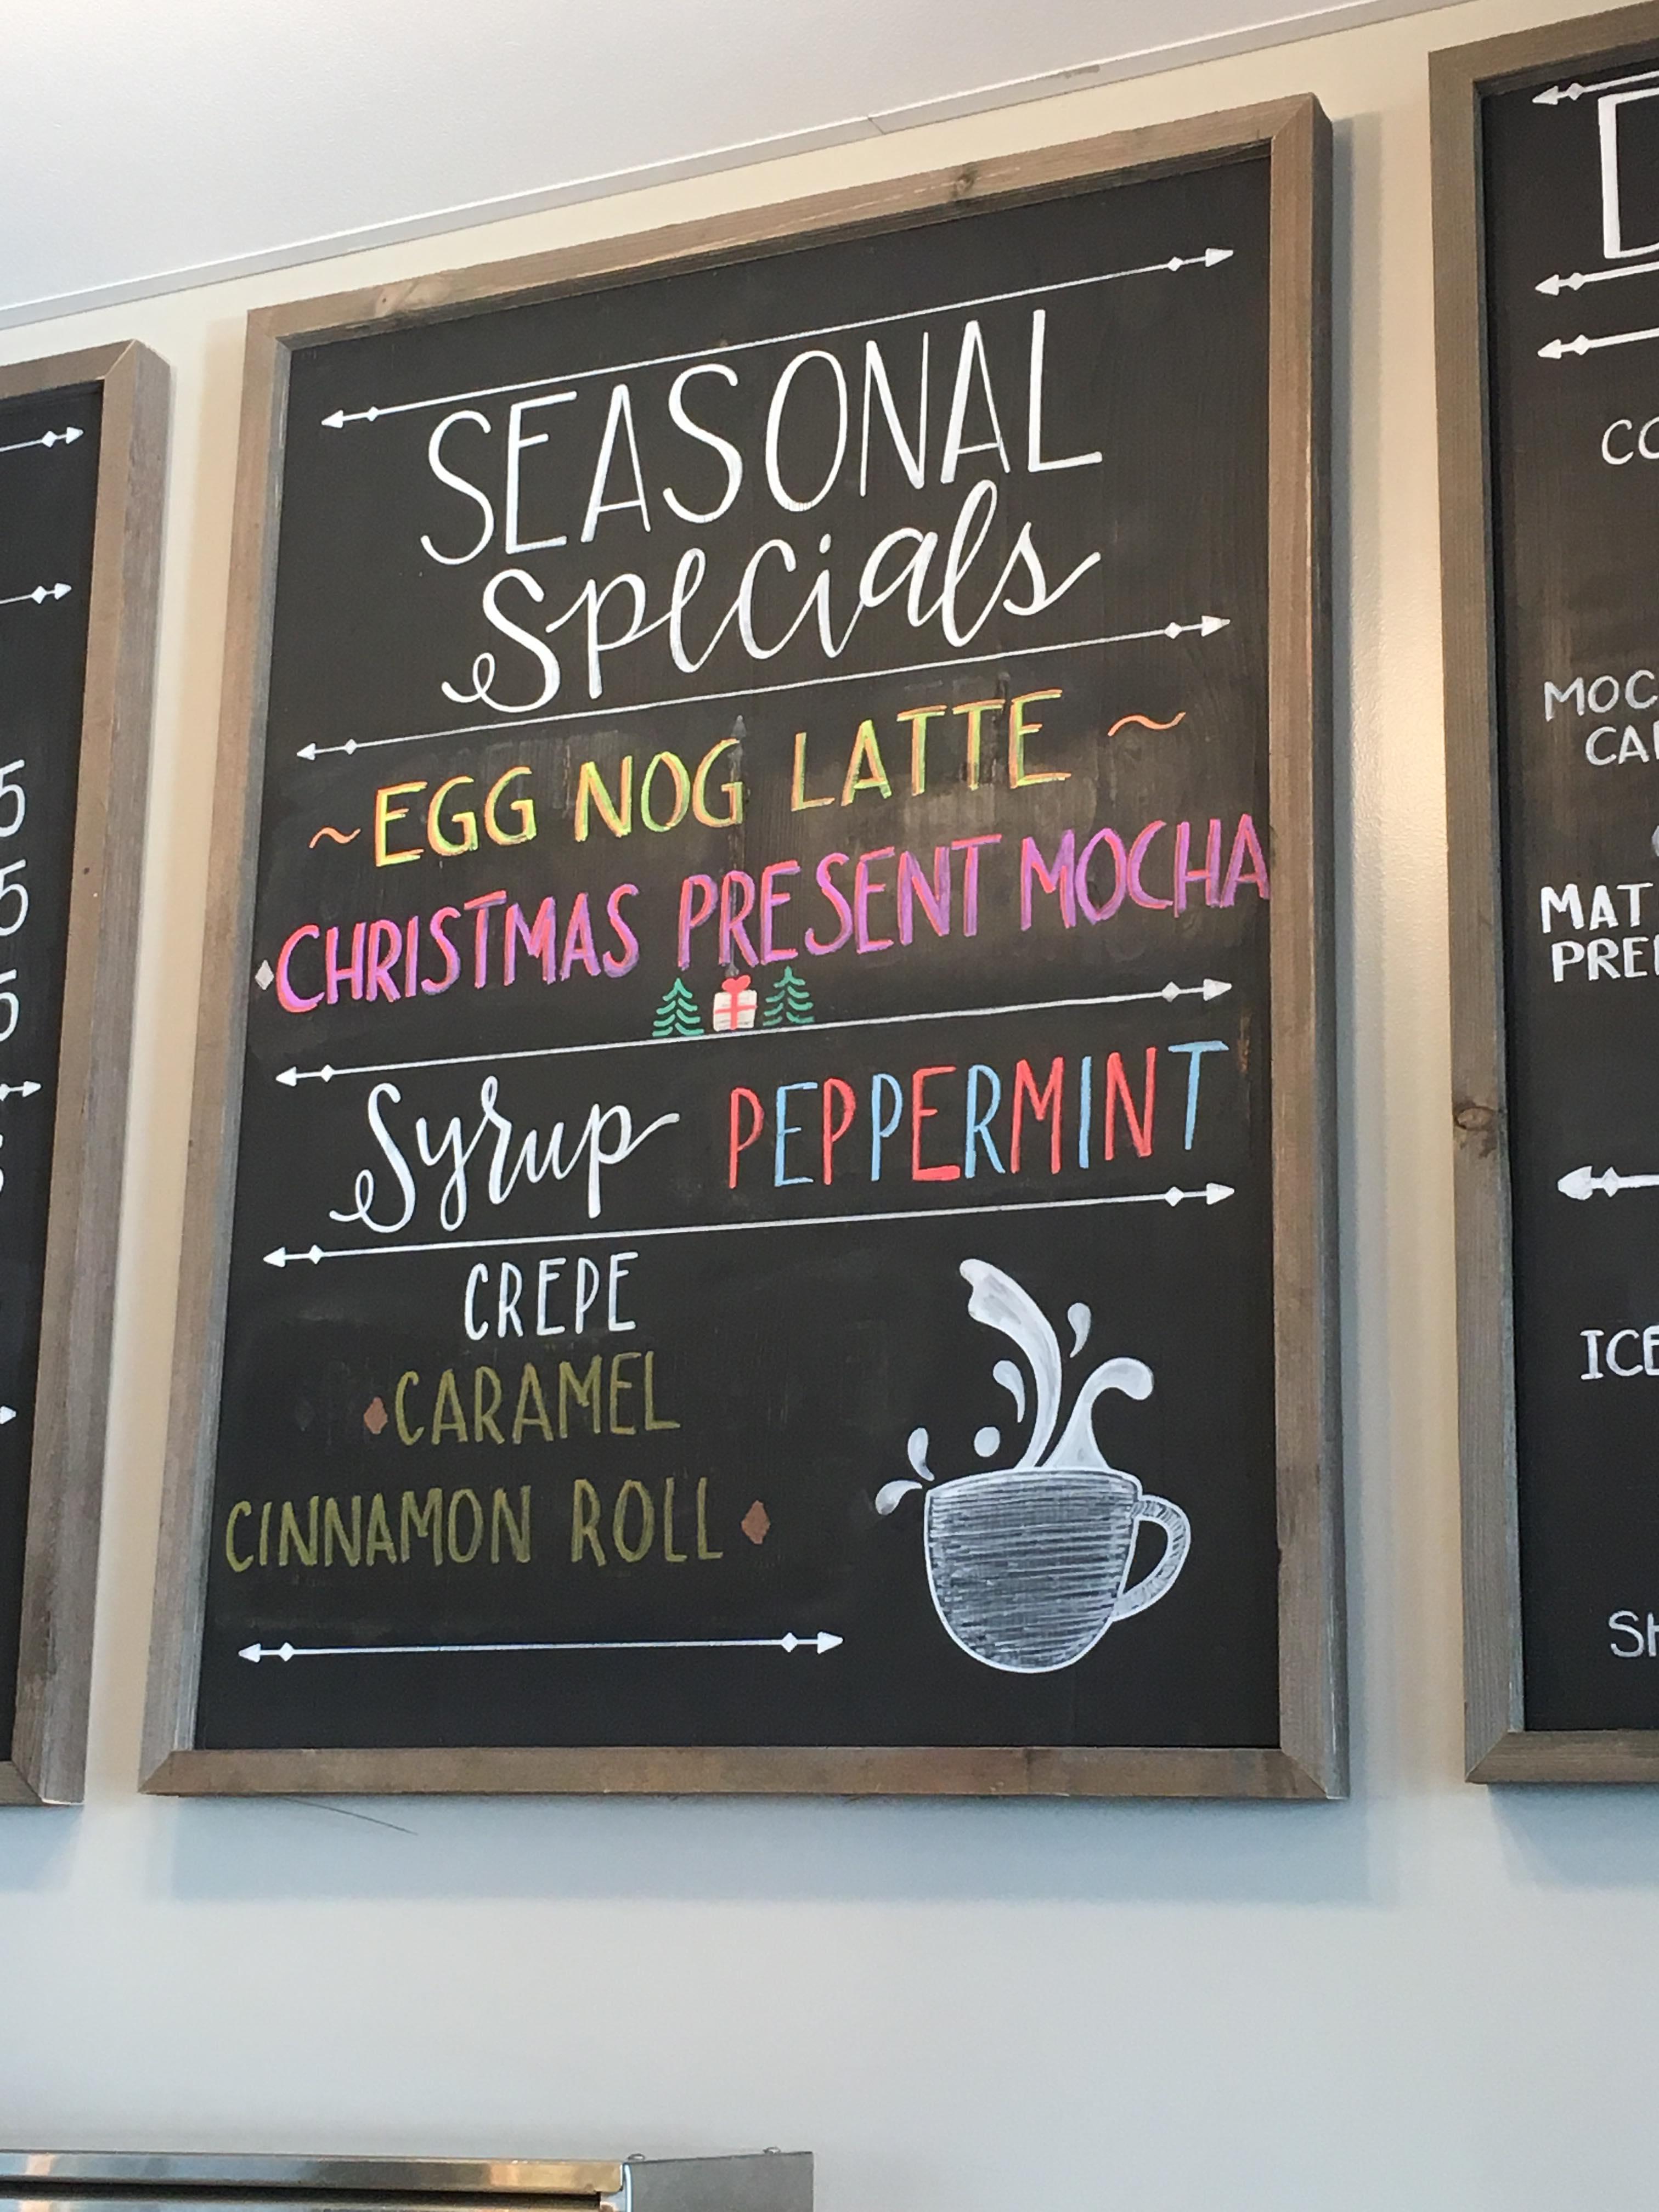 SEASONAL
Specials
~EGG NOG LATTE ~
CHRISTMAS PRESENT MOCHA
Syrup PEPPERMINT
CREPE
CARAMEL
CINNAMON ROLL
5
5
5
CO
MOC
CA
MAT
PRE
ICE
SH